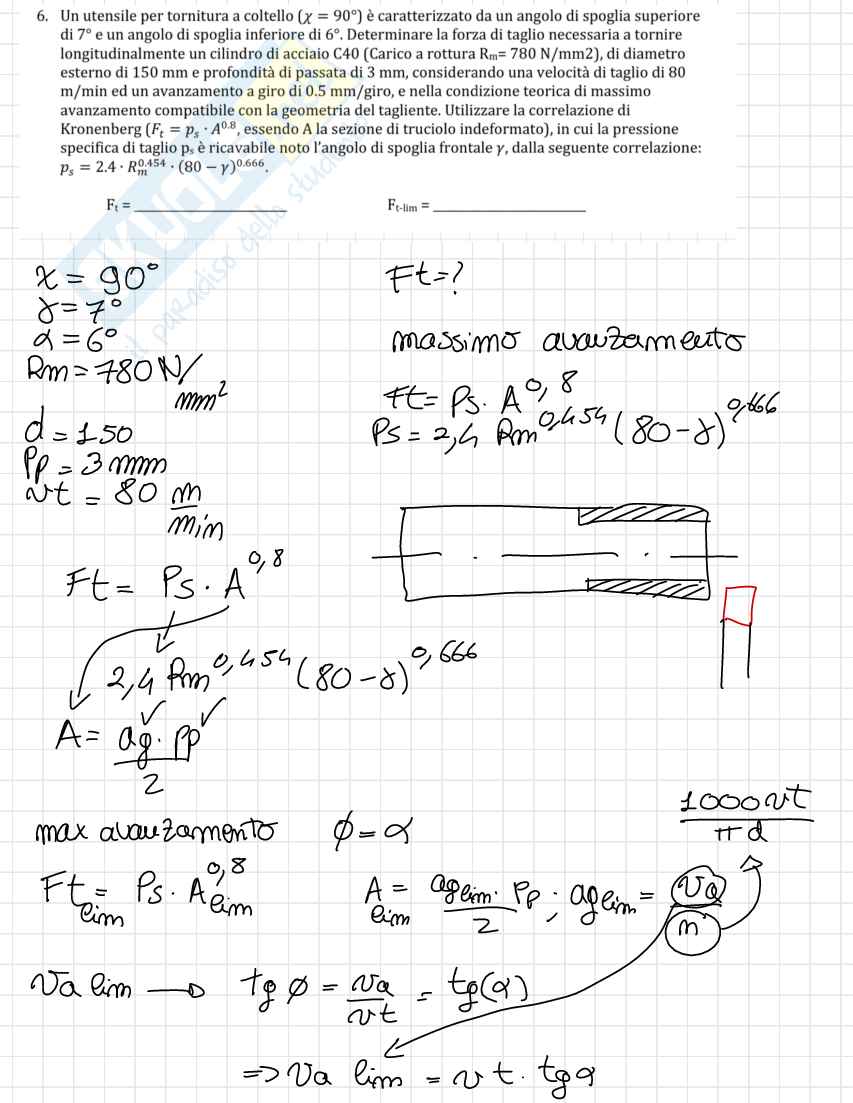 6. Un utensile per tornitura a coltello (χ = 90°) è caratterizzato da un angolo di spoglia superiore
di 7° e un angolo di spoglia inferiore di 6°. Determinare la forza di taglio necessaria a tornire
longitudinalmente un cilindro di acciaio C40 (Carico a rottura Rm= 780 N/mm2), di diametro
esterno di 150 mm e profondità di passata di 3 mm, considerando una velocità di taglio di 80
m/min ed un avanzamento a giro di 0.5 mm/giro, e nella condizione teorica di massimo
avanzamento compatibile con la geometria del tagliente. Utilizzare la correlazione di
Kronenberg (Ft = ps · A^0.8, essendo A la sezione di truciolo indeformato), in cui la pressione
specifica di taglio ps è ricavabile noto l'angolo di spoglia frontale γ, dalla seguente correlazione:
ps = 2.4 · Rm^0.454 · (80 − γ)^0.666.
Ft = ____________ Ft-lim = ____________
SKUOLA.net
il paradiso dello studente
χ = 90°
γ = 7°
α = 6°
Rm = 780 N/mm²
d = 150
Pp = 3 mm
vt = 80 m/min
Ft = ?
massimo avanzamento
Ft = Ps · A^0,8
Ps = 2,4 Rm^0,454 (80 - γ)^0,666
Ft = Ps · A^0,8
2,4 Rm^0,454 (80 - γ)^0,666
A = ag · pp / 2
max avanzamento ϕ = α
1000 vt / π d
Ft lim = Ps · A lim^0,8 A lim = ag lim · Pp / 2 ; ag lim = Va / n
Va lim → tg ϕ = va / vt = tg(α)
⇒ Va lim = vt · tg α